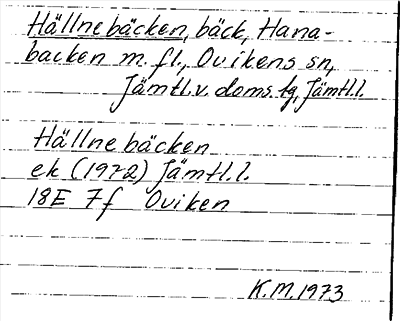 Hällnebäcken, bäck, Hana-
backen m. fl., Ovikens sn,
Jämtl.v. doms.tg, Jämtl.l.
Hällnebäcken
ek (1972) Jämtl.l.
18E 7f Oviken
K.M.1973